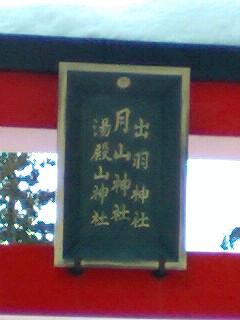 出羽神社
月山神社
湯殿山神社